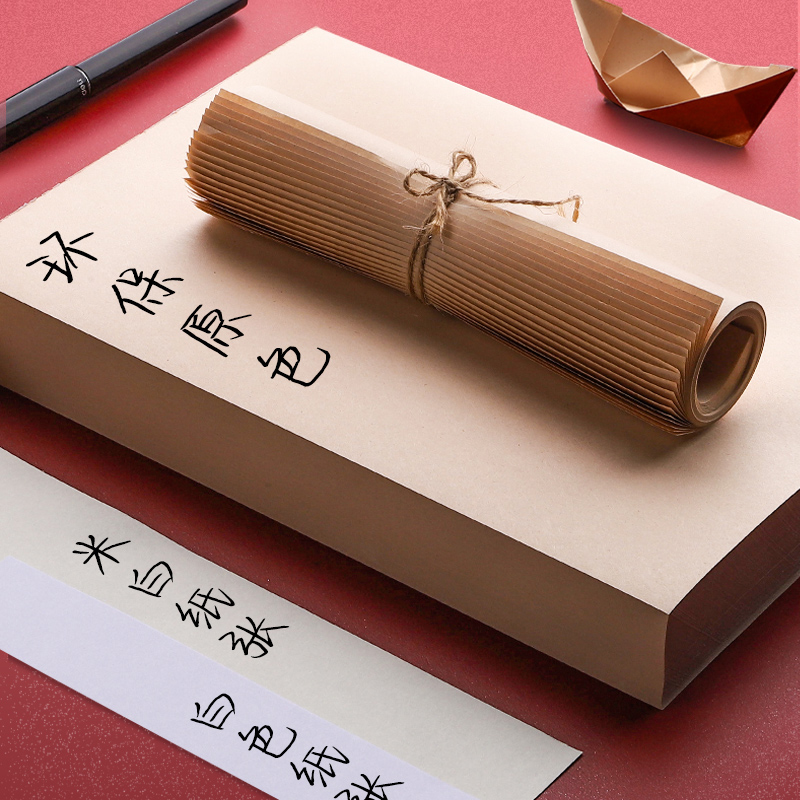 环保原色
米白纸张
白色纸张
deli